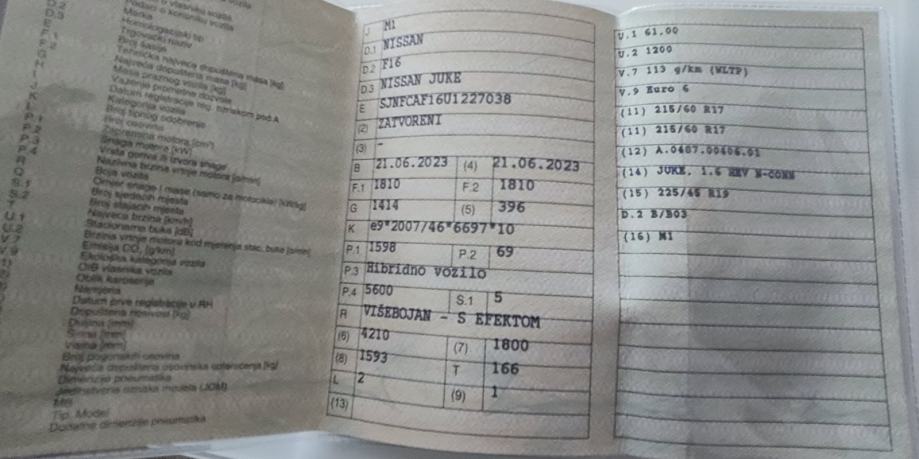 D.2
D.3
Marka
Homologacijski tip
Trgovački naziv
Broj šasije
Tehnička najveća dopuštena masa [kg]
Najveća dopuštena masa [kg]
Masa praznog vozila [kg]
Važenje prometne dozvole
Datum registracije reg. oznakom pod A
Kategorija vozila
Broj tipnog odobrenja
Broj osovina
P.1 Zapremina motora [cm³]
P.2 Snaga motora [kW]
P.3 Vrsta goriva ili izvora snage
P.4 Nazivna brzina vrtnje motora [o/min]
R Boja vozila
Q Omjer snage i mase (samo za motocikle) [kW/kg]
S.1 Broj sjedećih mjesta
S.2 Broj stajaćih mjesta
T Najveća brzina [km/h]
U.1 Stacionarna buka [dB]
U.2 Brzina vrtnje motora kod mjerenja stac. buke [o/min]
V.7 Emisija CO₂ [g/km]
V.9 Ekološka kategorija vozila
OIB vlasnika vozila
Oblik karoserije
Namjena
Datum prve registracije u RH
Dopuštena nosivost [kg]
Duljina [mm]
Širina [mm]
Visina [mm]
Broj pogonskih osovina
Najveća dopuštena osovinska opterećenja [kg]
Dimenzije pneumatika
Jedinstvena oznaka modela (JOM)
MB
Tip, Model
Dodatne dimenzije pneumatika
J M1
D.1 NISSAN
D.2 F16
D.3 NISSAN JUKE
E SJNFCAF16U1227038
(2) ZATVORENI
(3) -
B 21.06.2023 (4) 21.06.2023
F.1 1810 F.2 1810
G 1414 (5) 396
K e9*2007/46*6697*10
P.1 1598 P.2 69
P.3 Hibridno vozilo
P.4 5600 S.1 5
R VIŠEBOJAN - S EFEKTOM
(6) 4210 (7) 1800
(8) 1593 T 166
L 2 (9) 1
(13)
U.1 61,00
U.2 1200
V.7 113 g/km (WLTP)
V.9 Euro 6
(11) 215/60 R17
(11) 215/60 R17
(12) A.0407.00606.01
(14) JUKE, 1.6 HEV N-CONN
(15) 225/45 R19
D.2 B/B03
(16) M1